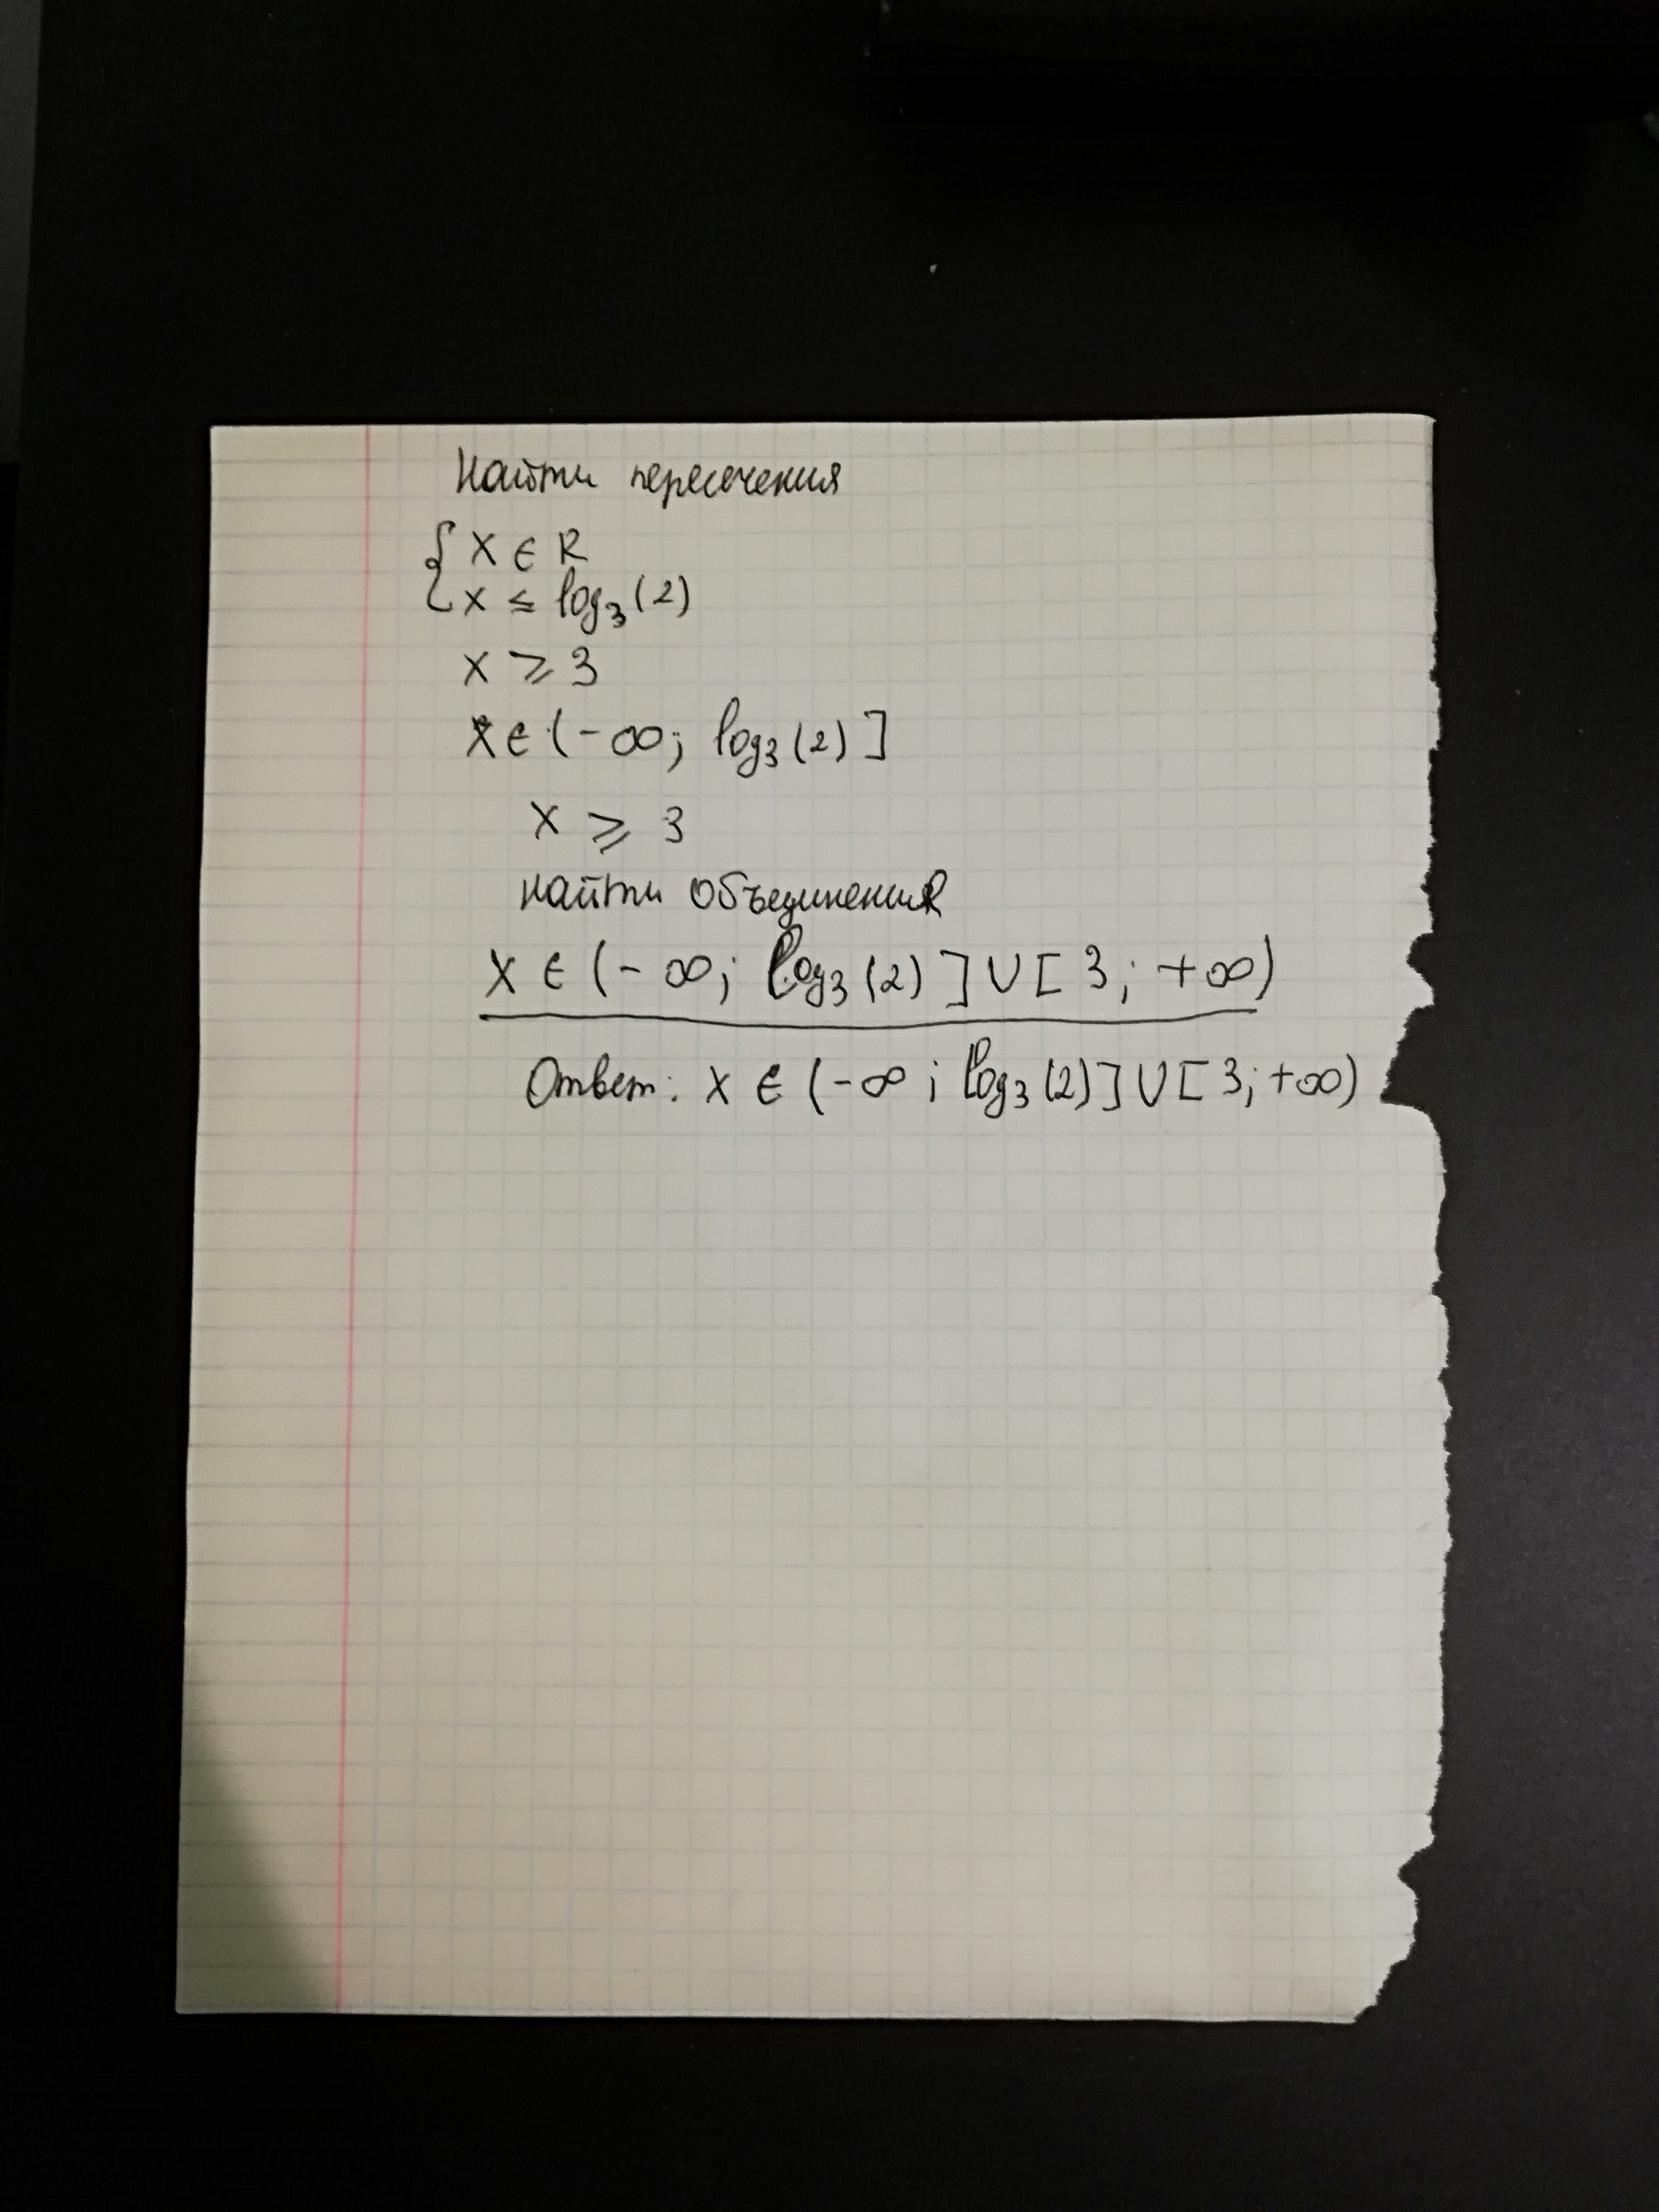 Найти пересечения
{ x ∈ R
x ≤ log₃(2)
x ⩾ 3
x ∈ (-∞; log₃(2)]
x ⩾ 3
найти объединения
x ∈ (-∞; log₃(2)] ∪ [3; +∞)
Ответ: x ∈ (-∞; log₃(2)] ∪ [3; +∞)